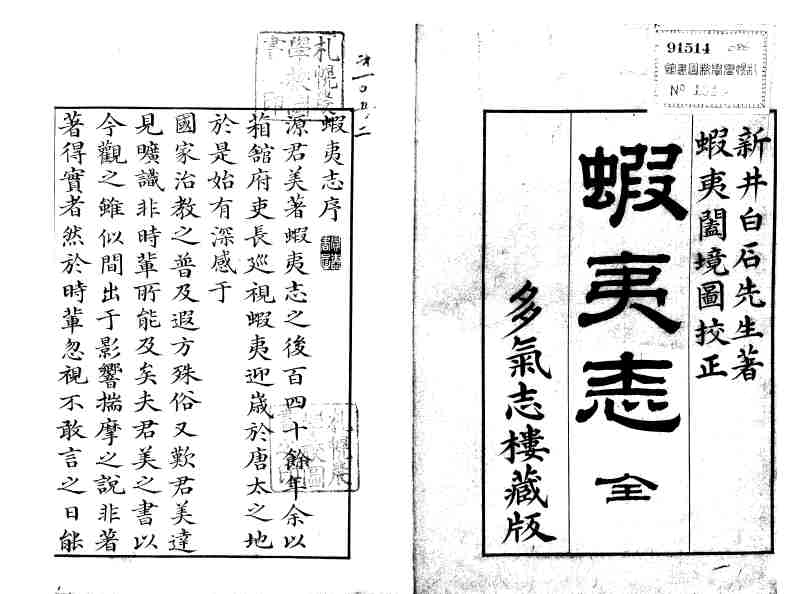 91514
札幌農學校圖書館
No
新井白石先生著
蝦夷闔境圖挍正
蝦夷志 全
多氣志樓藏版
札幌農
學校圖
書印
蝦夷志序
源君美著蝦夷志之後百四十餘年余以
箱舘府吏長廵視蝦夷迎歳於唐太之地
於是始有深感于
國家治教之普及遐方殊俗又歎君美達
見曠識非時輩所能及矣夫君美之書以
今觀之雖似間出于影響揣摩之説非著
著得實者然於時輩忽視不敢言之日能